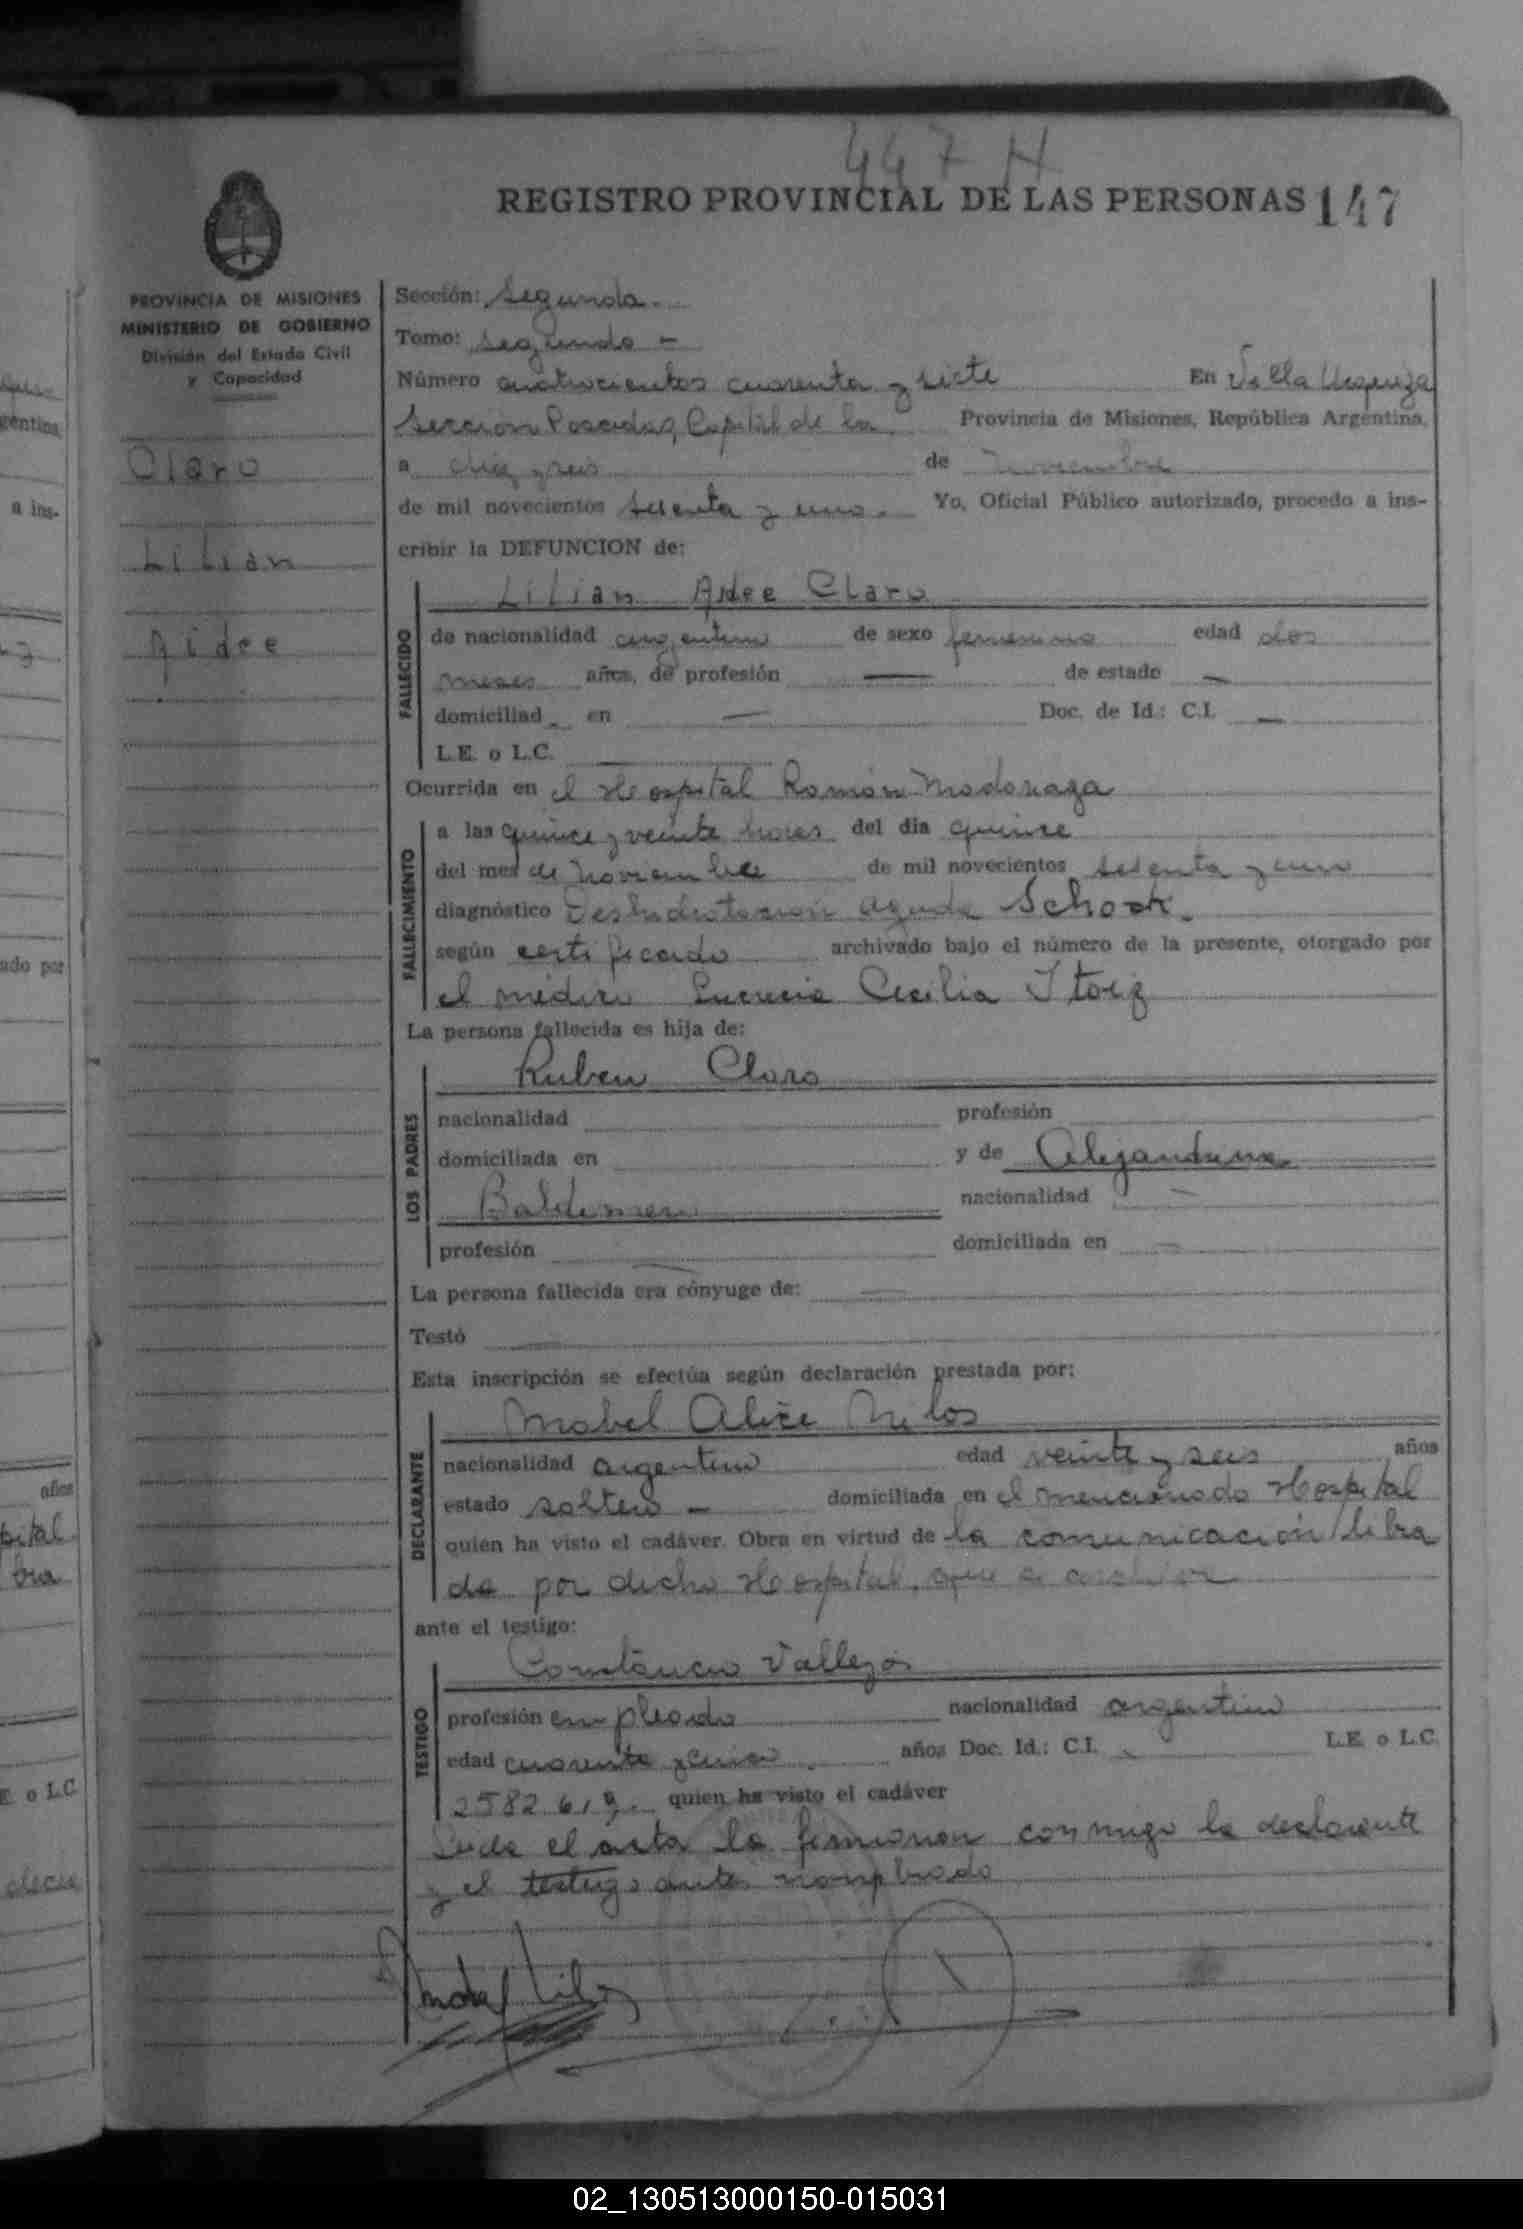 447 H
REGISTRO PROVINCIAL DE LAS PERSONAS 147
PROVINCIA DE MISIONES
MINISTERIO DE GOBIERNO
División del Estado Civil
y Capacidad
Claro
Lilian
Aidee
Sección: Segunda.
Tomo: segundo -
Número cuatrocientos cuarenta y siete En Villa Urquiza
Sección Posadas, Capital de la Provincia de Misiones, República Argentina,
a diez y seis de noviembre
de mil novecientos sesenta y uno. Yo, Oficial Público autorizado, procedo a ins-
cribir la DEFUNCION de:
FALLECIDO
Lilian Aidee Claro
de nacionalidad argentina de sexo femenino edad dos
meses años, de profesión — de estado —
domiciliad en — Doc. de Id.: C.I. —
L.E. o L.C.
Ocurrida en el Hospital Ramón Madariaga
FALLECIMIENTO
a las quince y veinte horas del dia quince
del mes de Noviembre de mil novecientos sesenta y uno
diagnóstico Deshidratación aguda Schock.
según certificado archivado bajo el número de la presente, otorgado por
el médico Lucrecia Cecilia Itoiz
La persona fallecida es hija de:
LOS PADRES
Ruben Claro
nacionalidad profesión
domiciliada en y de Alejandrina
nacionalidad —
profesión — domiciliada en —
La persona fallecida era cónyuge de: —
Testó —
Esta inscripción se efectúa según declaración prestada por:
DECLARANTE
Mabel Alice Milos
nacionalidad argentina edad veinte y seis años
estado soltera - domiciliada en el mencionado Hospital
quien ha visto el cadáver. Obra en virtud de la comunicación libra
da por dicho Hospital, que se
ante el testigo:
TESTIGO
Constancio Vallejos
profesión empleado nacionalidad argentino
edad cuarenta y años Doc. Id.: C.I. L.E. o L.C.
2582619 quien ha visto el cadáver
Leida el acta la firmaron conmigo la declarante
y el testigo antes nombrado
Mabel Milos
02_130513000150-015031